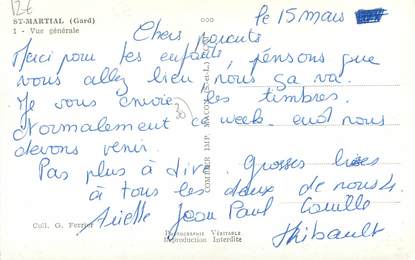 12€
ST-MARTIAL (Gard)
1 - Vue générale
le 15 mars
Chers parents
Merci pour les enfants, pensons que
vous allez bien, nous ça va.
Je vous envoie les timbres.
Normalement ce week-end nous
devons venir.
Pas plus à dire. Grosses bises
à tous les deux de nous 4.
Arielle Jean Paul Camille
Thibault
Coll. G. Ferrier
PHOTOGRAPHIE VÉRITABLE
Reproduction Interdite
COMBIER IMP. MACON (S.-et-L.)